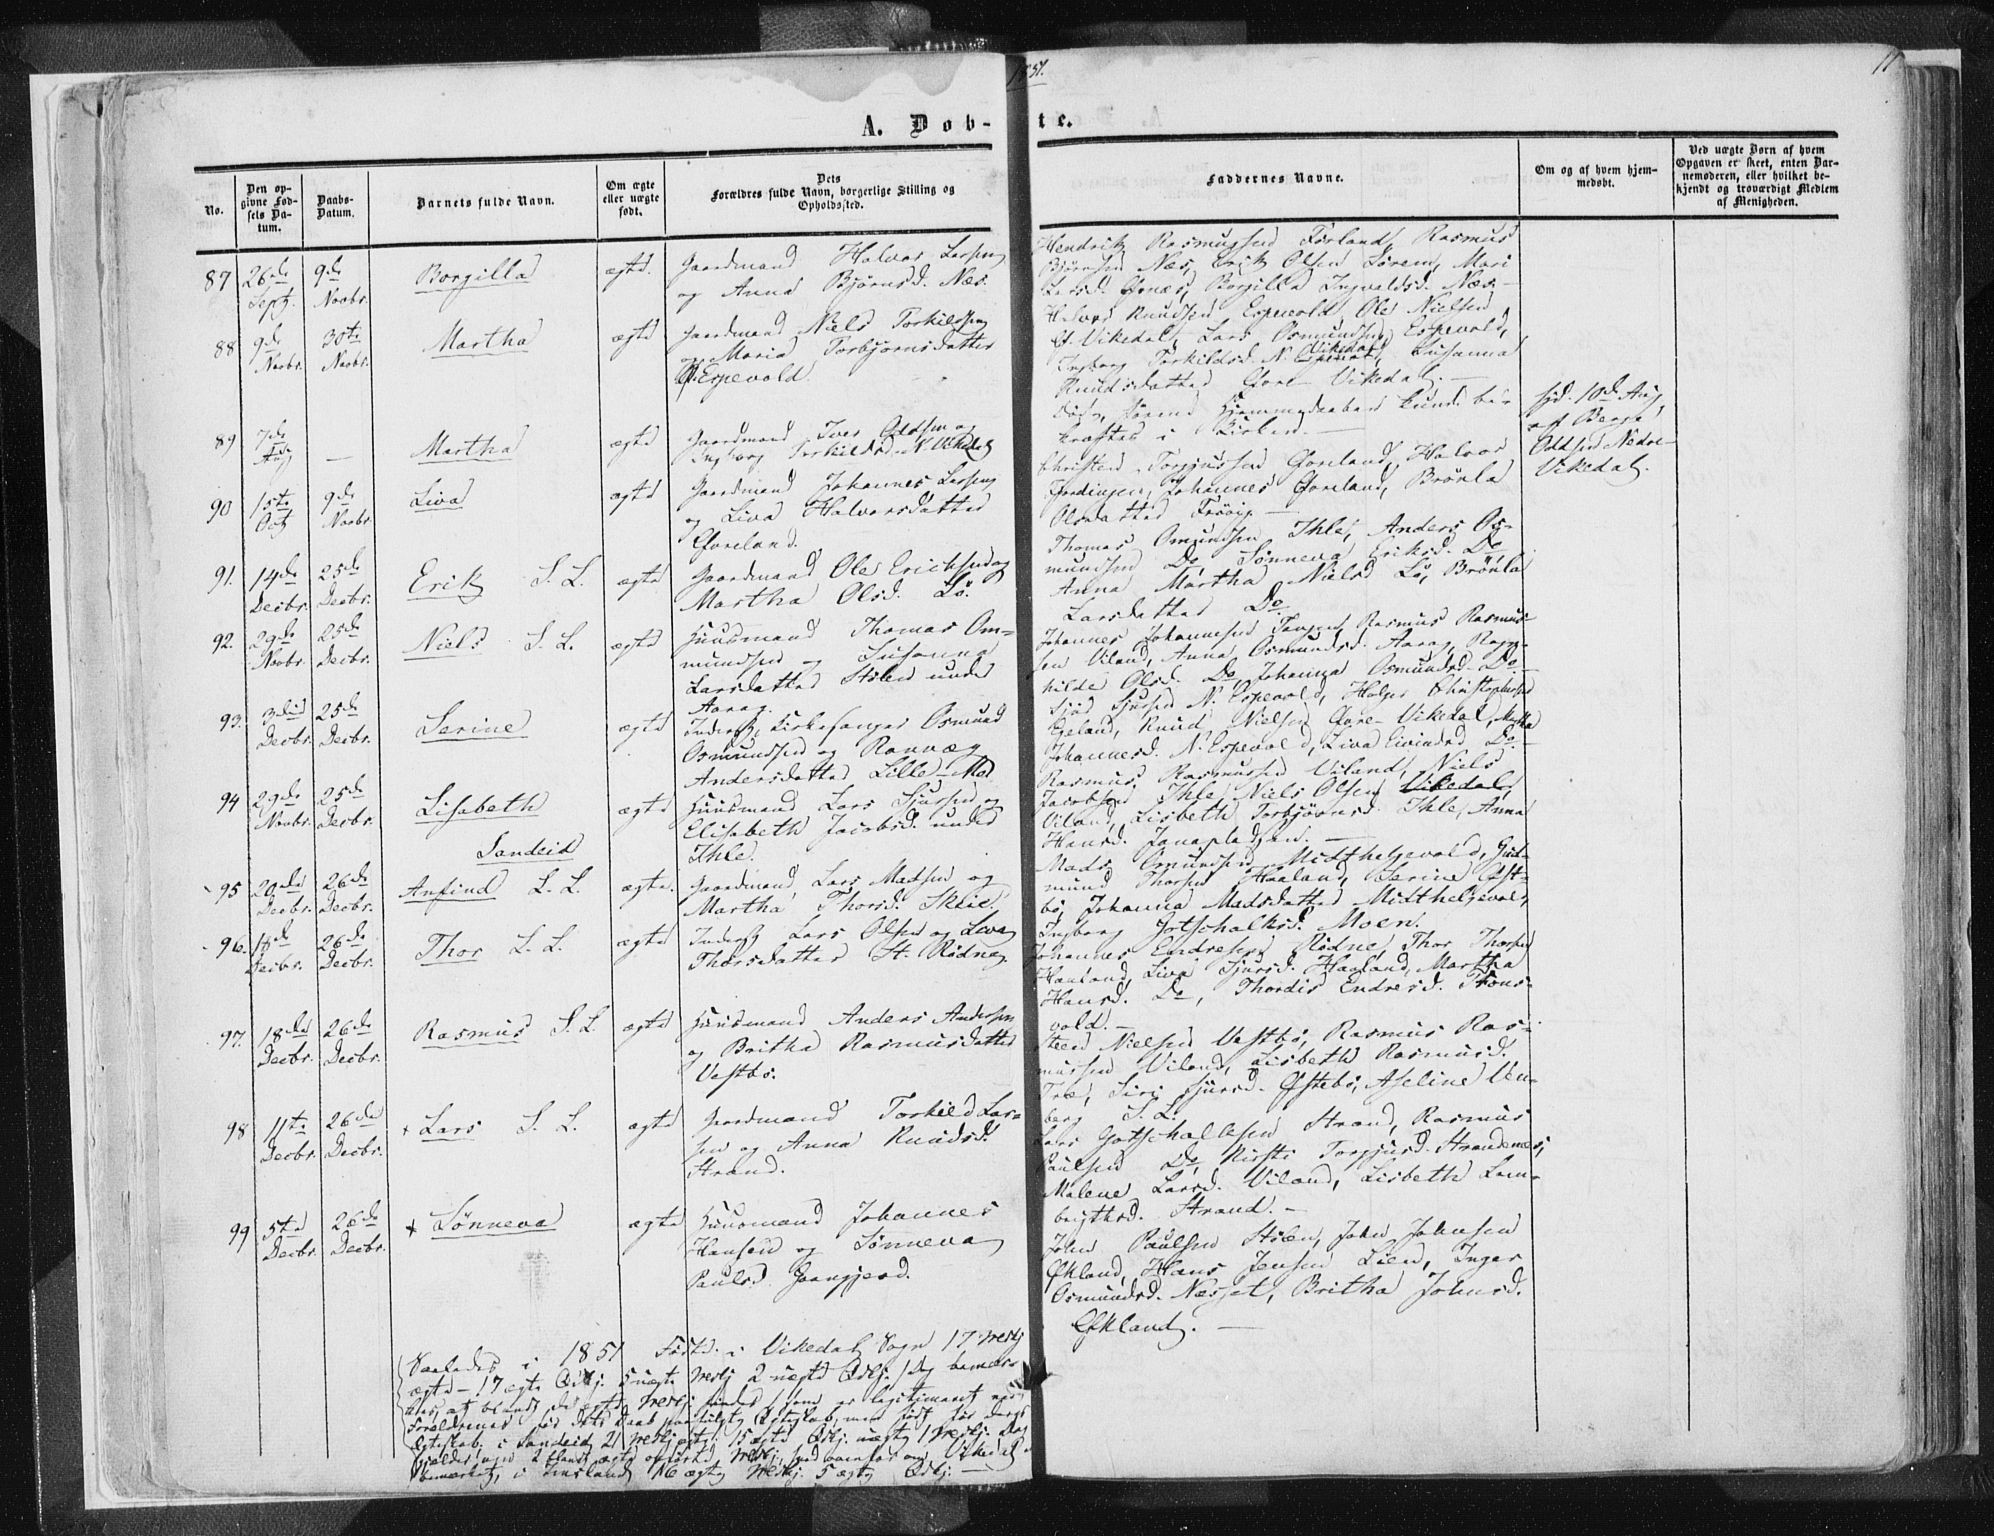 1851.
11
A. Dob-
te.
No.
Den op-
givne Fød-
sels Da-
tum.
Daabs-
Datum.
Barnets fulde Navn.
Om ægte
eller uægte
født.
Dets
Forældres fulde Navn, borgerlige Stilling og
Opholdssted.
Faddernes Navne.
Om og af hvem hjem-
medøbt.
Ved uægte Børn af hvem
Opgaven er skeet, enten Bar-
nemoderen, eller hvilket be-
kjendt og troværdigt Medlem
af Menigheden.
87
26de
Septr.
9de
Novbr.
Borgilla
ægte
Gaardmand Halvor Larsen
og Anna Bjørnsd. Næs.
Hendrik Rasmussen Førland, Rasmus
Bjørnsen Næs, Erik Olsen Sørem, Mari
Larsd. Øvnæs, Borgilla Ingvaldsd. Næs. —
88
9de
Novbr.
30te
Novbr.
Martha
ægte
Gaardmand Niels Torkildsen
og Maria Torbjørnsdatter
Espevold.
Halvor Knudsen Espevold, Ole Nielsen
Vikedal, Lars Osmundsen Espevold,
Ingborg Torkildsd. N. Vikedal, Susanna
Knudsdatter Øvre Vikedal. —
89
7de
Aug
—
Martha
ægte
Gaardmand Iver Oddsen og
Ingborg Torkildsd. N. Vikedal
Døde, førend Hjemmedaaben kunde be-
kræftes i Kirken. —
hjd. 10de Aug.
af Berge
Oddsen Nedre-
Vikedal.
90
15te
Oct
9de
Novbr.
Liva
ægte
Gaardmand Johannes Larsen
og Liva Halvorsdatter
Øvreland.
Christen Torgjussen Øvreland, Halvor
Fjordingen, Johannes Øvreland, Brønla
Olsdatter Frøvig —
91.
14de
Decbr.
25de
Decbr.
Erik S. L.
ægte
Gaardmand Ole Ericksen og
Martha Olsd. Lø.
Thomas Omundsen Ihle, Anders Os-
mundsen Do, Sønneva Eriksd. Do
Anna Martha Nielsd Lø, Brønla
Larsdatter Do
92.
29de
Novbr.
25de
Decbr.
Niels S. L.
ægte
Huusmand Thomas Om-
mundsen og Susanna
Larsdatter Stølen under
Aarag.
Johannes Johannesen Tangen, Rasmus Rasmus-
sen Viland, Anna Osmundsd. Aarag, Ragn-
hilde Olsd. Do, Johanna Osmundsd. Do —
93.
3die
Decbr.
25de
Decbr.
Serine
ægte
Inderst, Kirkesanger Osmund
Osmundsen og Ranvæg
Andersdatter Lille-Mo.
Sjurs Sjursen N. Espevold, Holger Christophersen
Egeland, Knud Nielsen Øvre-Vikedal, Martha
Johannesd. N. Espevold, Liva Eivindsd Do. —
94
29de
Novbr.
25de
Decbr.
Lisabeth
ægte
Huusmand Lars Sjursen og
Elisabeth Jacobsd. under
Ihle.
Rasmus Rasmussen Viland, Niels
Jacobsen Ihle, Niels Olsen Vikedal,
Viland, Lisbeth Torbjørnsd. Ihle, Anna
Hansd. —
Sandeid
95
20de
Decbr.
26de
Decbr.
Anfind L. L.
ægte.
Gaardmand Lars Madsen og
Martha Thorsd. Skeie,
Mads Omundsen Midthelgevold, Gud-
mund Thorsen Haaland, Serine Øst-
bø, Johanna Madsdatter Midthelgevold,
Ingborg Gotschalksd. Moen.
96.
18de
Decbr.
26de
Decbr.
Thor L. L.
ægte
Inderst Lars Olsen og Liva
Thorsdatter St. Rødne.
Johannes Endresen Rødne, Thor Thorsen
Haaland, Liva Sjursd. Haaland, Martha
Hansd. Do, Thordis Endresd. Trons-
vold. —
97.
18de
Decbr.
26de
Decbr.
Rasmus S. L.
ægte
Huusmand Anders Andersen
og Britha Rasmusdatter
Vestbø.
Steen Nielsen Vestbø, Rasmus Ras-
mussen Viland, Lisbeth Rasmusd.
Træ, Siri Sjursd. Østebø, Aseline Ven-
berg S. L.
98
11te
Decbr.
26de
Decbr.
+ Lars S. L.
ægte
Gaardmand Torkild Lar-
sen og Anna Knudsd.
Strand.
Lars Gotschalksen Strand, Rasmus
Paulsen Do, Kirsti Torgjusd. Strandenæs,
Malene Larsd. Viland, Lisbeth Lam-
brigtsd. Strand. —
99
5te
Decbr.
26de
Decbr.
+ Sønneva
ægte
Huusmand Johannes
Hansen og Sønneva
Paulsd. Gaangjerd.
John Paulsen Stølen, John Johnsen
Økland, Hans Jensen Lien, Inger
Osmundsd. Nesset, Britha Johnsd.
Økland. —
Saaledes i 1851 Fødte i Vikedal Sogn 17 Mskj
ægte – 17 ægte Qvkj. 5 uægte Mskj 2 uægte Qvkj. Dog bemær-
kes, at blandt de ægte Mskj findes 1, som er legitimeret ved
Forældrenes før dets Daab paafulgte Ægteskab, men født før deres
Ægteskab. i Sandeid 21 Mskj ægte 15 ægte Qvkj. uægte 1 Mskj. Dog
gjælder med 2 blandt ægte opførte Mskj, hvad ovenfor om Vikedal
bemærket, i Imsland 16 ægte Mskj. 5 ægte Qvkj. —